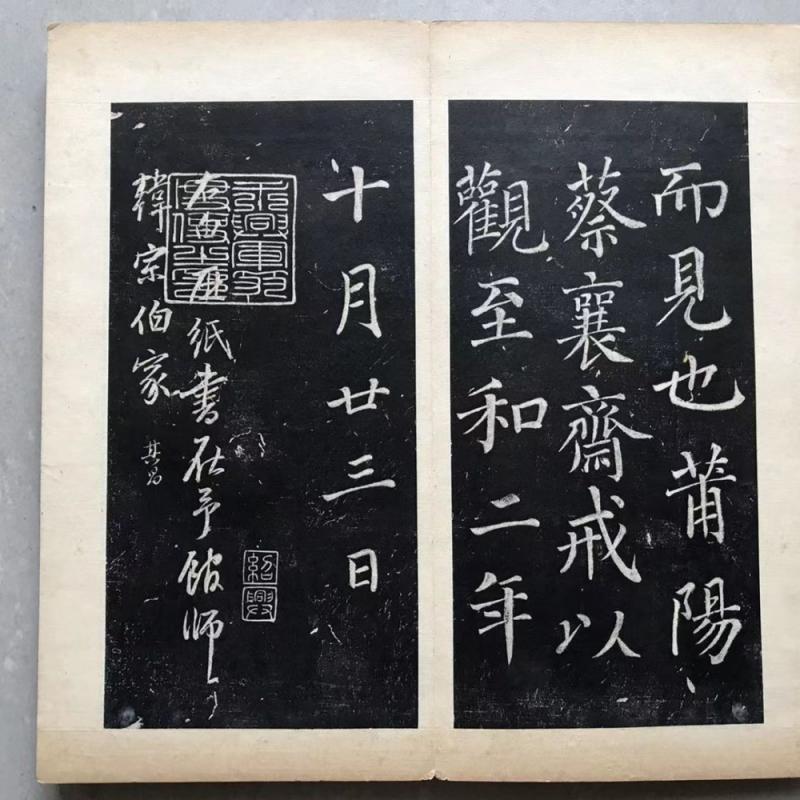 而見也莆陽
蔡襄齋戒以
觀至和二年
十月廿三日
紹興
紙書在予館師
韓宗伯家 其昌